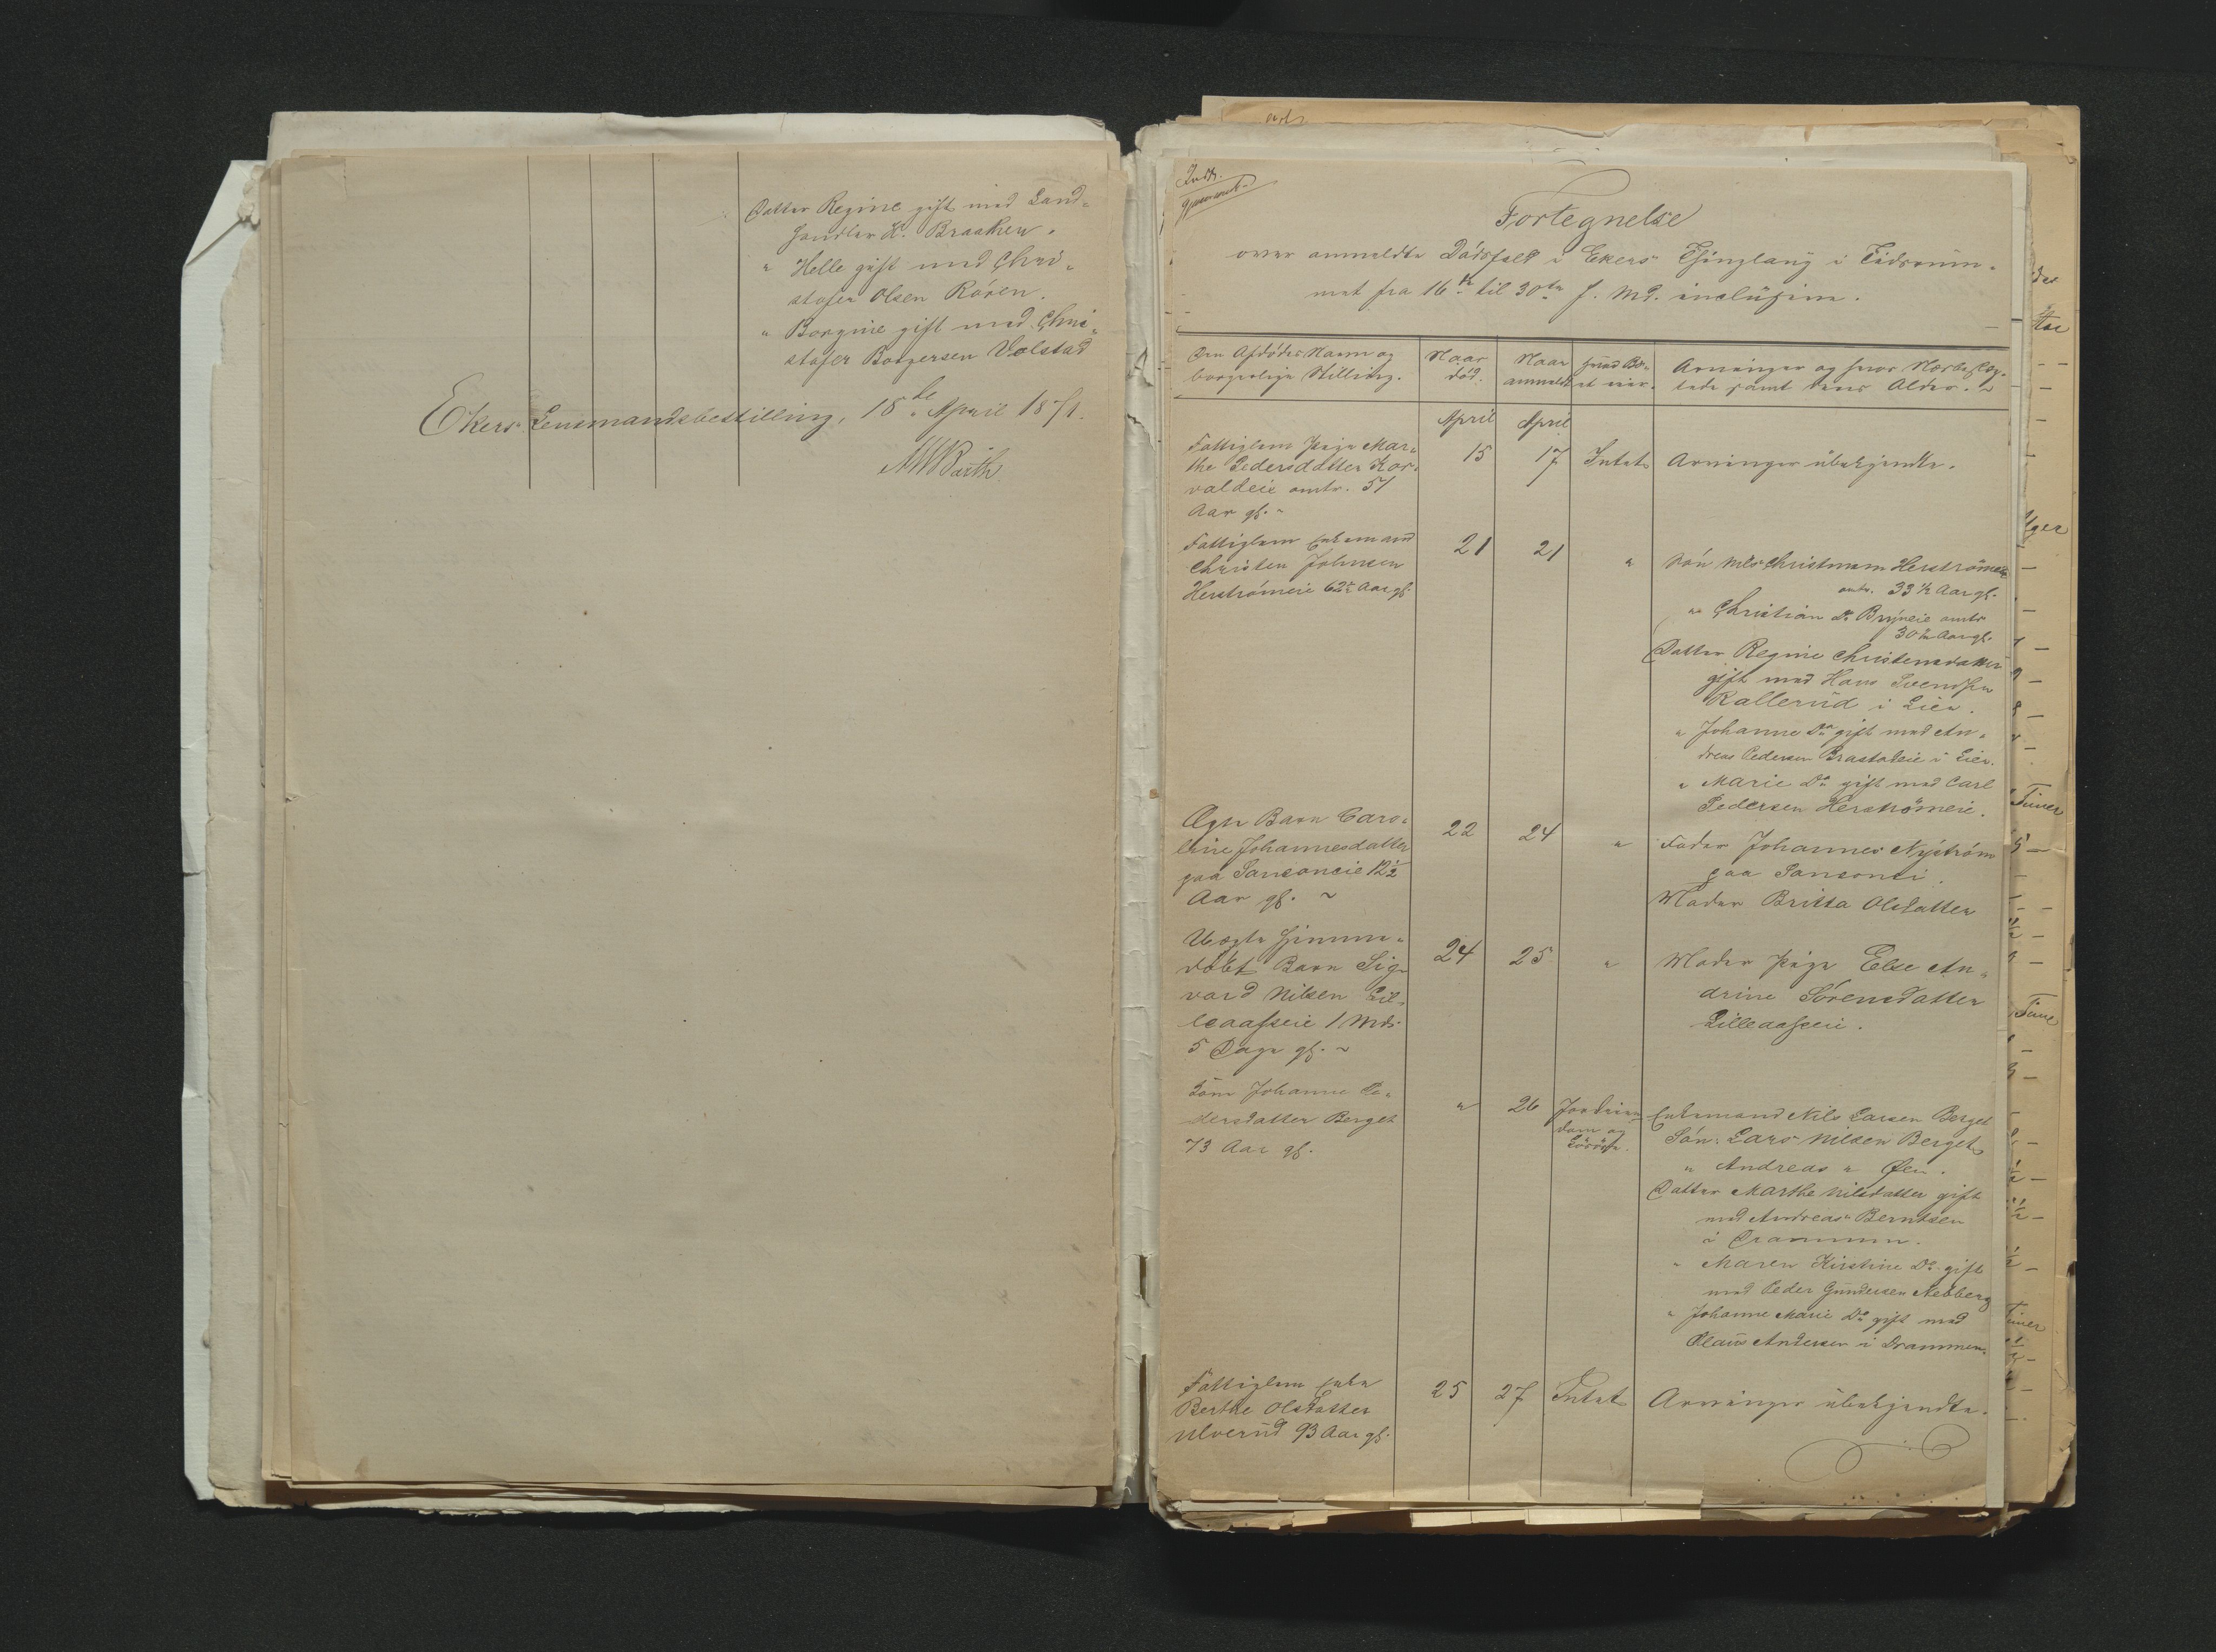 Datter Regine gift med Land-
handler K. Braaken.
" Helle gift med Chri-
stofer Olsen Roren.
" Borgine gift med Chri-
stofer Borgersen Volstad
Ekers Lensmandsbestilling, 18de April 1871.
MWBarth.
Indk.
Fortegnelse
over anmeldte Dödsfald i Ekers Thinglaug i Tidsrum-
met fra 16de til 30te f. Md. inclusive.
Den Afdödes Navn og
borgerlige Stilling.
Naar
död.
Naar
anmeldt
hvad Bo-
et eier.
Arvinger og hvor
samt deres Alder.
April
April
Fattiglem Pige Mar-
the Pedersdatter Kor-
valdeie omtr. 51
Aar gl.
15
17
Intet
Arvinger ubekjendte.
Fattiglem Enkemand
Christen Johnsen
Herströmeie 62 Aar gl.
21
21
"
Sön Nils Christensen Herströmeie
omtr. 33 1/2 Aar gl.
" Christian Do Bryneie omtr
30 Aar gl.
Datter Regine Christensdatter
gift med Hans Svendsen
Kallerud i Lier.
" Johanne Do gift med An-
dreas Pedersen Brastadeie i Lier.
" Marie Do gift med Carl
Pedersen Herströmeie.
Ægte Barn Caro-
line Johannesdatter
paa Sanconeie 12 1/2
Aar gl.
22
24
"
Fader Johannes Nyström
paa Sansonei.
Moder Britta Olsdatter
Uægte hjemme-
döbt Barn Sig-
vard Nilsen Lil-
leaaseie 1 Mds.
5 Dage gl.
24
25
"
Moder Pige Else An-
drine Sörensdatter
Lilleaaseie.
Kone Johanne Pe-
dersdatter Berget
73 Aar gl.
"
26
Jordeien-
dom og
Lösöre.
Enkemand Nils Larsen Berget
Sön: Lars Nilsen Berget
" Andreas " Øen.
Datter Marthe Nilsdatter gift
med Andreas Berntsen
i Drammen.
" Maren Kirstine Do gift
med Peder Gundersen Aebberg
" Johanne Marie Do gift med
Olaus Andersen i Drammen.
Fattiglem Enke
Berthe Olsdatter
Ulverud 93 Aar gl.
25
27
Intet
Arvinger ubekjendte.